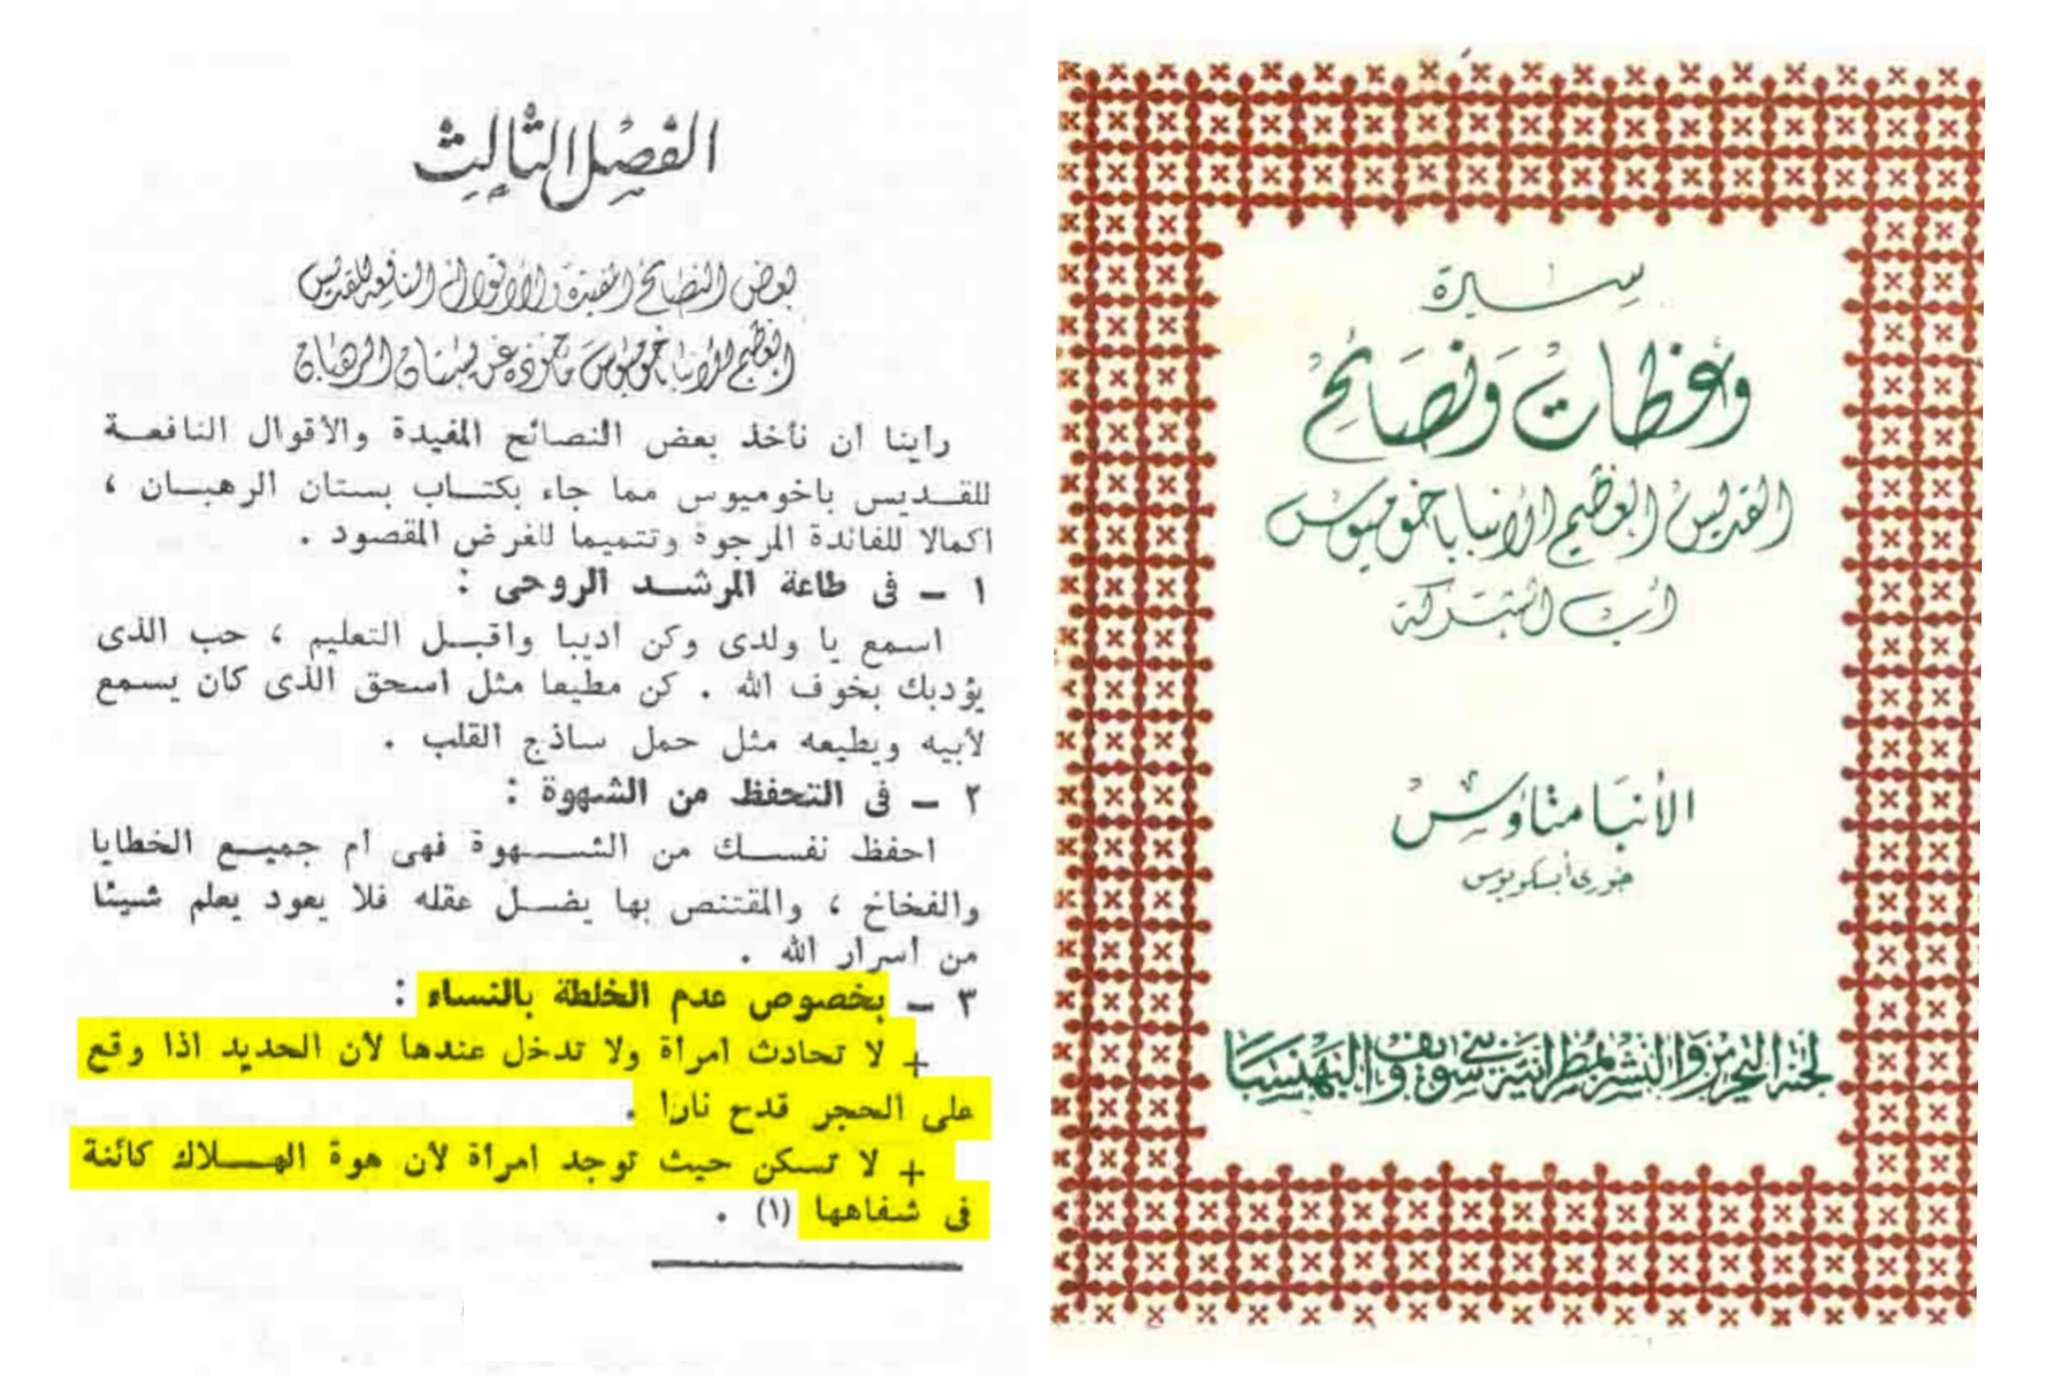 الفصل الثالث
بعض النصائح المفيدة والأقوال النافعة للقديس
العظيم الأنبا باخوميوس مأخوذة عن بستان الرهبان
راينا ان نأخذ بعض النصائح المفيدة والأقوال النافعـــة
للقـــديس باخوميوس مما جاء بكتـــاب بستان الرهبـــان ،
اكمالا للفائدة المرجوة وتتميما للغرض المقصود .
١ – فى طاعة المرشـــد الروحى :
اسمع يا ولدى وكن أديبا واقبـــل التعليم ، حب الذى
يؤدبك بخوف الله . كن مطيعا مثل اسحق الذى كان يسمع
لأبيه ويطيعه مثل حمل ساذج القلب .
٢ – فى التحفظ من الشهوة :
احفظ نفســـك من الشـــهوة فهى أم جميـــع الخطايا
والفخاخ ، والمقتنص بها يضـــل عقله فلا يعود يعلم شيئا
من أسرار الله .
٣ – بخصوص عدم الخلطة بالنساء :
+ لا تحادث امرأة ولا تدخل عندها لأن الحديد اذا وقع
على الحجر قدح نارا .
+ لا تسكن حيث توجد امرأة لأن هوة الهـــلاك كائنة
فى شفاهها (١) .
سيرة
وعظات ونصائح
القديس العظيم الأنبا باخوميوس
أب الشركة
الأنبا متاؤس
خورى أبسكوبوس
لجنة التحرير والنشر بمطرانية بنى سويف والبهنسا